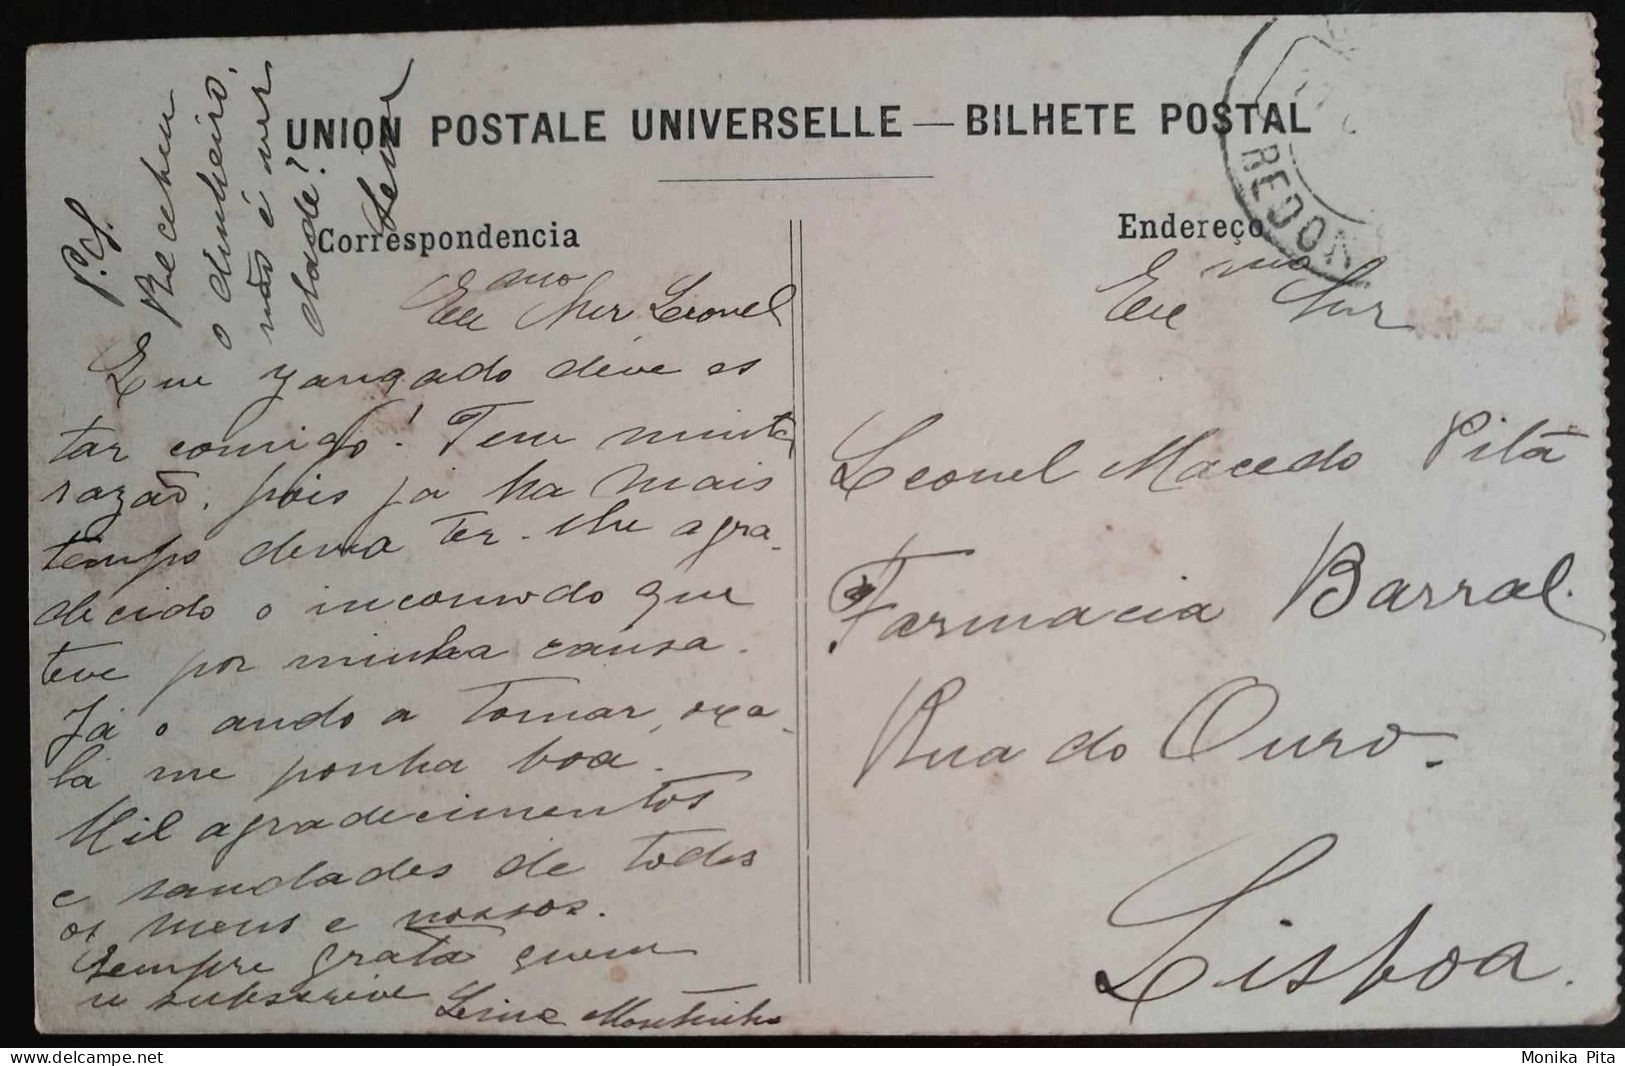 UNION POSTALE UNIVERSELLE — BILHETE POSTAL
Correspondencia
Exmo Snr Leonel
Que zangado deve es
tar comigo! Tem muita
razão, pois já ha mais
tempo devia ter-lhe agra-
decido o incomodo que
teve por minha causa.
Já o ando a tomar, oxa-
lá me ponha boa.
Mil agradecimentos
e saudades de todos
os meus e nossos.
Sempre grata quem
se subscreve
P.S.
Recebeu
o dinheiro,
não é ver
dade?
Endereço
REDON
Exmo Snr
Leonel Macedo Pitá
Farmacia Barral.
Rua do Ouro.
Lisboa.
Monika Pita